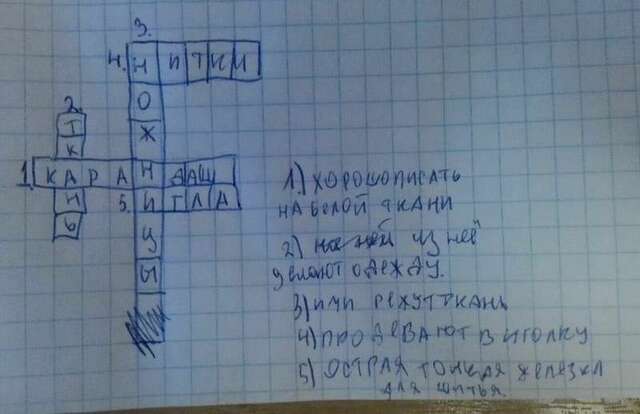 3.
4. НИТКИ
О
2. Ж
Т
К
1. КАРАНДАШ
Н 5. ИГЛА
Ь Ц
Ы
1.) ХОРОШОПИСАТЬ
НАБЕЛОЙ ТКАНИ
2) ИЗ НЕЁ
ДЕЛАЮТ ОДЕЖДУ.
3) ИМИ РЕЖУТТКАНЬ
4) ПРОДЕВАЮТ В ИГОЛКУ
5) ОСТРАЯ ТОНКАЯ ЖЕЛЕЗКА
ДЛЯ ШИТЬЯ.